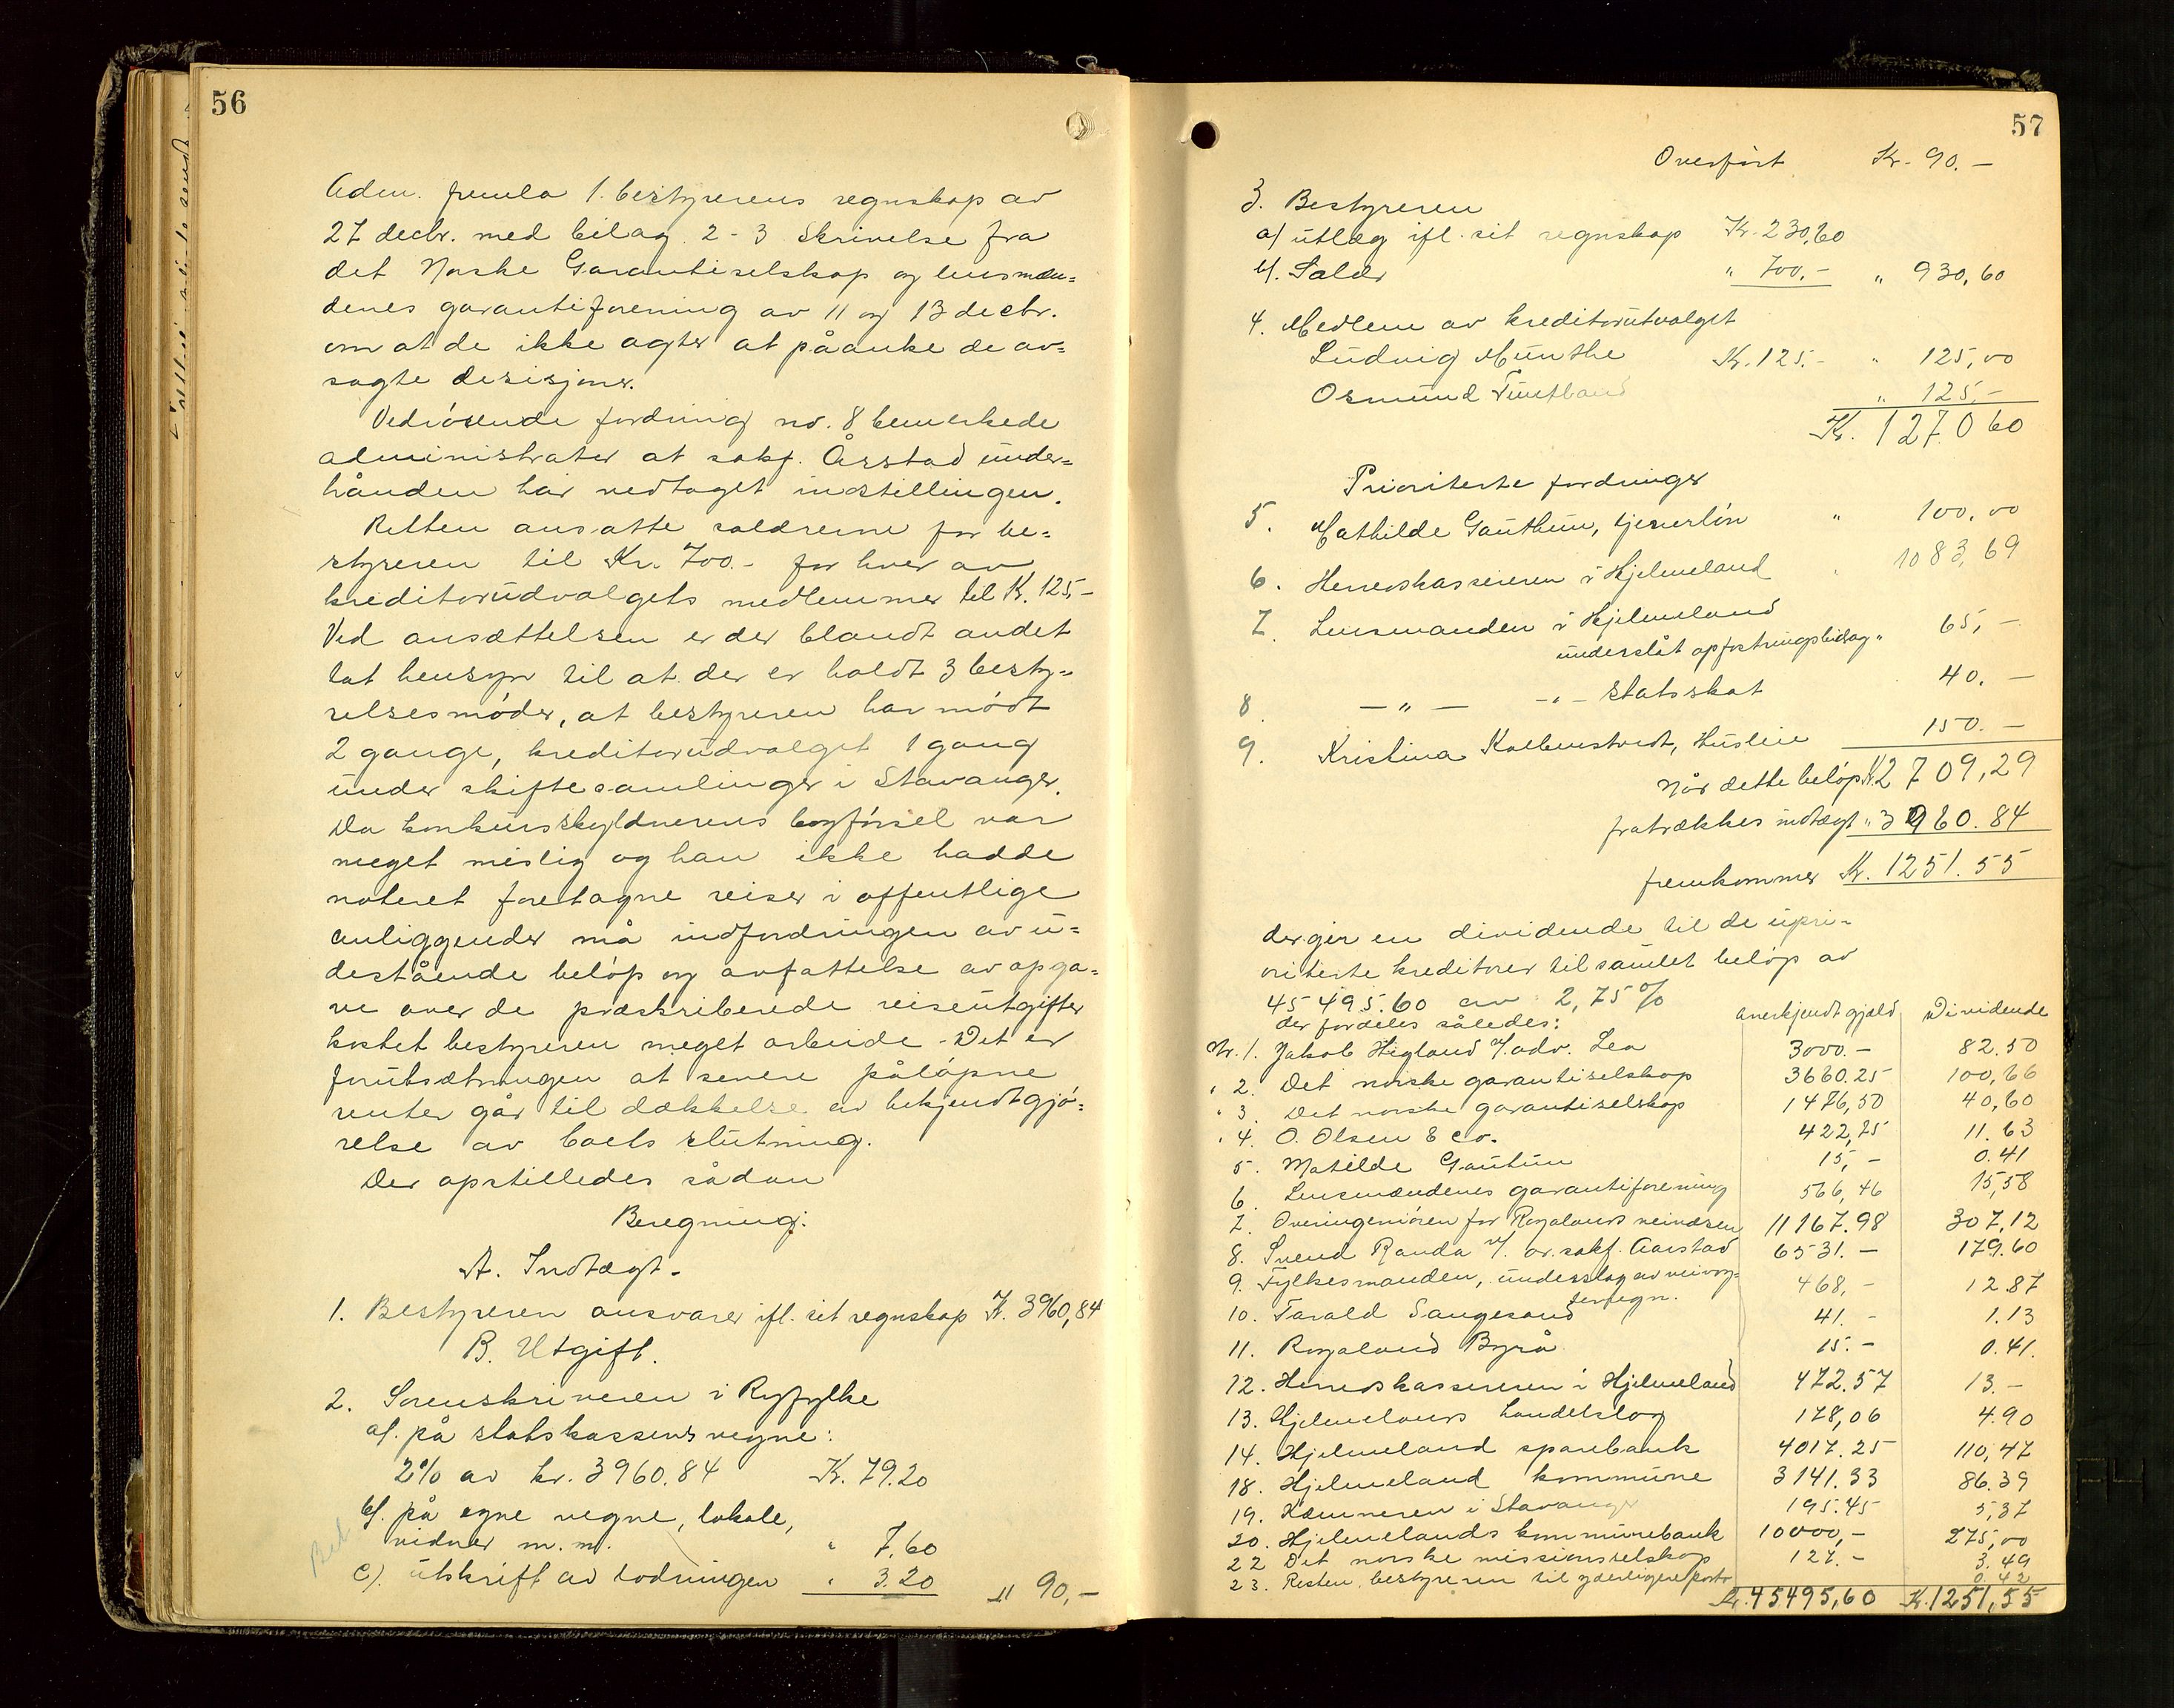 56
Adm. fremla 1. bestyrerens regnskap av
27 decbr. med bilag. 2-3 Skrivelse fra
det Norske Garantiselskap og lensmæn=
denes garantiforening av 11 og 13 decbr.
om at de ikke agter at påanke de av=
sagte desisjoner.
Vedrörende fordring no. 8 bemerkede
administrator at sakf. Årstad under=
hånden har vedtaget indstillingen.
Retten ansatte salærerne for be=
styreren til Kr. 700.- for hver av
kreditorudvalgets medlemmer til K. 125,-
Ved ansættelsen er der blandt andet
tat hensyn til at der er holdt 3 besty=
relsesmöder, at bestyreren har mödt
2 gange, kreditorudvalget 1 gang
under skiftesamlinger i Stavanger.
Da konkursskyldnerens bogförsel var
meget mislig og han ikke hadde
noteret foretagne reiser i offentlige
anliggender må indfordringen av u=
destående belöp og avfattelse av opga=
ve over de præskriberede reiseutgifter
kostet bestyreren meget arbeide. Det er
forutsætningen at senere pålöpne
renter går til dækkelse av bekjendtgjö=
relse av boets slutning.
Der opstilledes sådan
Beregning:
A. Indtægt.
1. Bestyreren ansvarer ifl. sit regnskap K. 3960,84
B. Utgift.
2. Sorenskriveren i Ryfylke
a/. på statskassens vegne:
2% av kr. 3960.84 K. 79.20
b/. på egne vegne, lokale,
vidner m.m. " 7,60
c). utskrift av lodningen " 3.20 " 90,-
57
Overfört Kr. 90.-
3. Bestyreren
a/ utlæg ifl. sit regnskap Kr. 230,60
b/. Salær " 700,- " 930,60
4. Medlem av kreditorutvalget
Ludvig Munthe Kr. 125.- " 125,00
Osmund " 125,-
Kr. 1270 60
Prioriterte fordringer
5. Mathilde Gauthun, tjenerlön " 100,00
6. Herredskassereren i Hjelmeland " 1083,69
7. Lensmanden i Hjelmeland
underslåt opfostringsbidrag " 65,-
8. -"- -"- statsskat 40.-
9. Kristina Kolbenstvedt, Husleie 150.-
Når dette belöp K. 2709,29
fratrækkes indtægt " 3960.84
fremkommer Kr. 1251.55
der gir en dividende til de upri=
oriterte kreditorer til samlet belöp av
45495.60 av 2,75%
der fordeles således: anerkjendt gjæld Dividende
Nr. 1. Jakob Higland v/. adv. Lea 3000.- 82.50
" 2. Det norske garantiselskap 3660.25 100,66
" 3. Det norske garantiselskap 1476,50 40,60
" 4. O. Olsen & Co. 422,75 11.63
5. Matilde Gautun 15,- 0.41
6. Lensmændenes garantiforening 566,46 15,58
7. Overingeniören for Rogalands veivæsen 11167.98 307,12
8. Svend Randa v/. or. sakf. Aarstad 6531.- 179.60
9. Fylkesmanden, underslag av veivog=
terregn. 468,- 12.87
10. Tarald Sangesand 41.- 1.13
11. Rogaland Byrå 15.- 0.41.
12. Herredskassereren i Hjelmeland 472.57 13.-
13. Hjelmelands handelslag 178,06 4.90
14. Hjelmeland sparebank 4017.25 110,47
18. Hjelmeland kommune 3141.33 86.39
19. Kæmneren i Stavanger 195.45 5,37
20. Hjelmelands kommunebank 10000,- 275,00
22 Det norske missionsselskap 127.- 3.49
23. Resten, bestyreren til yderligere porto 0.42
Kr. 45495,60 Kr. 1251,55